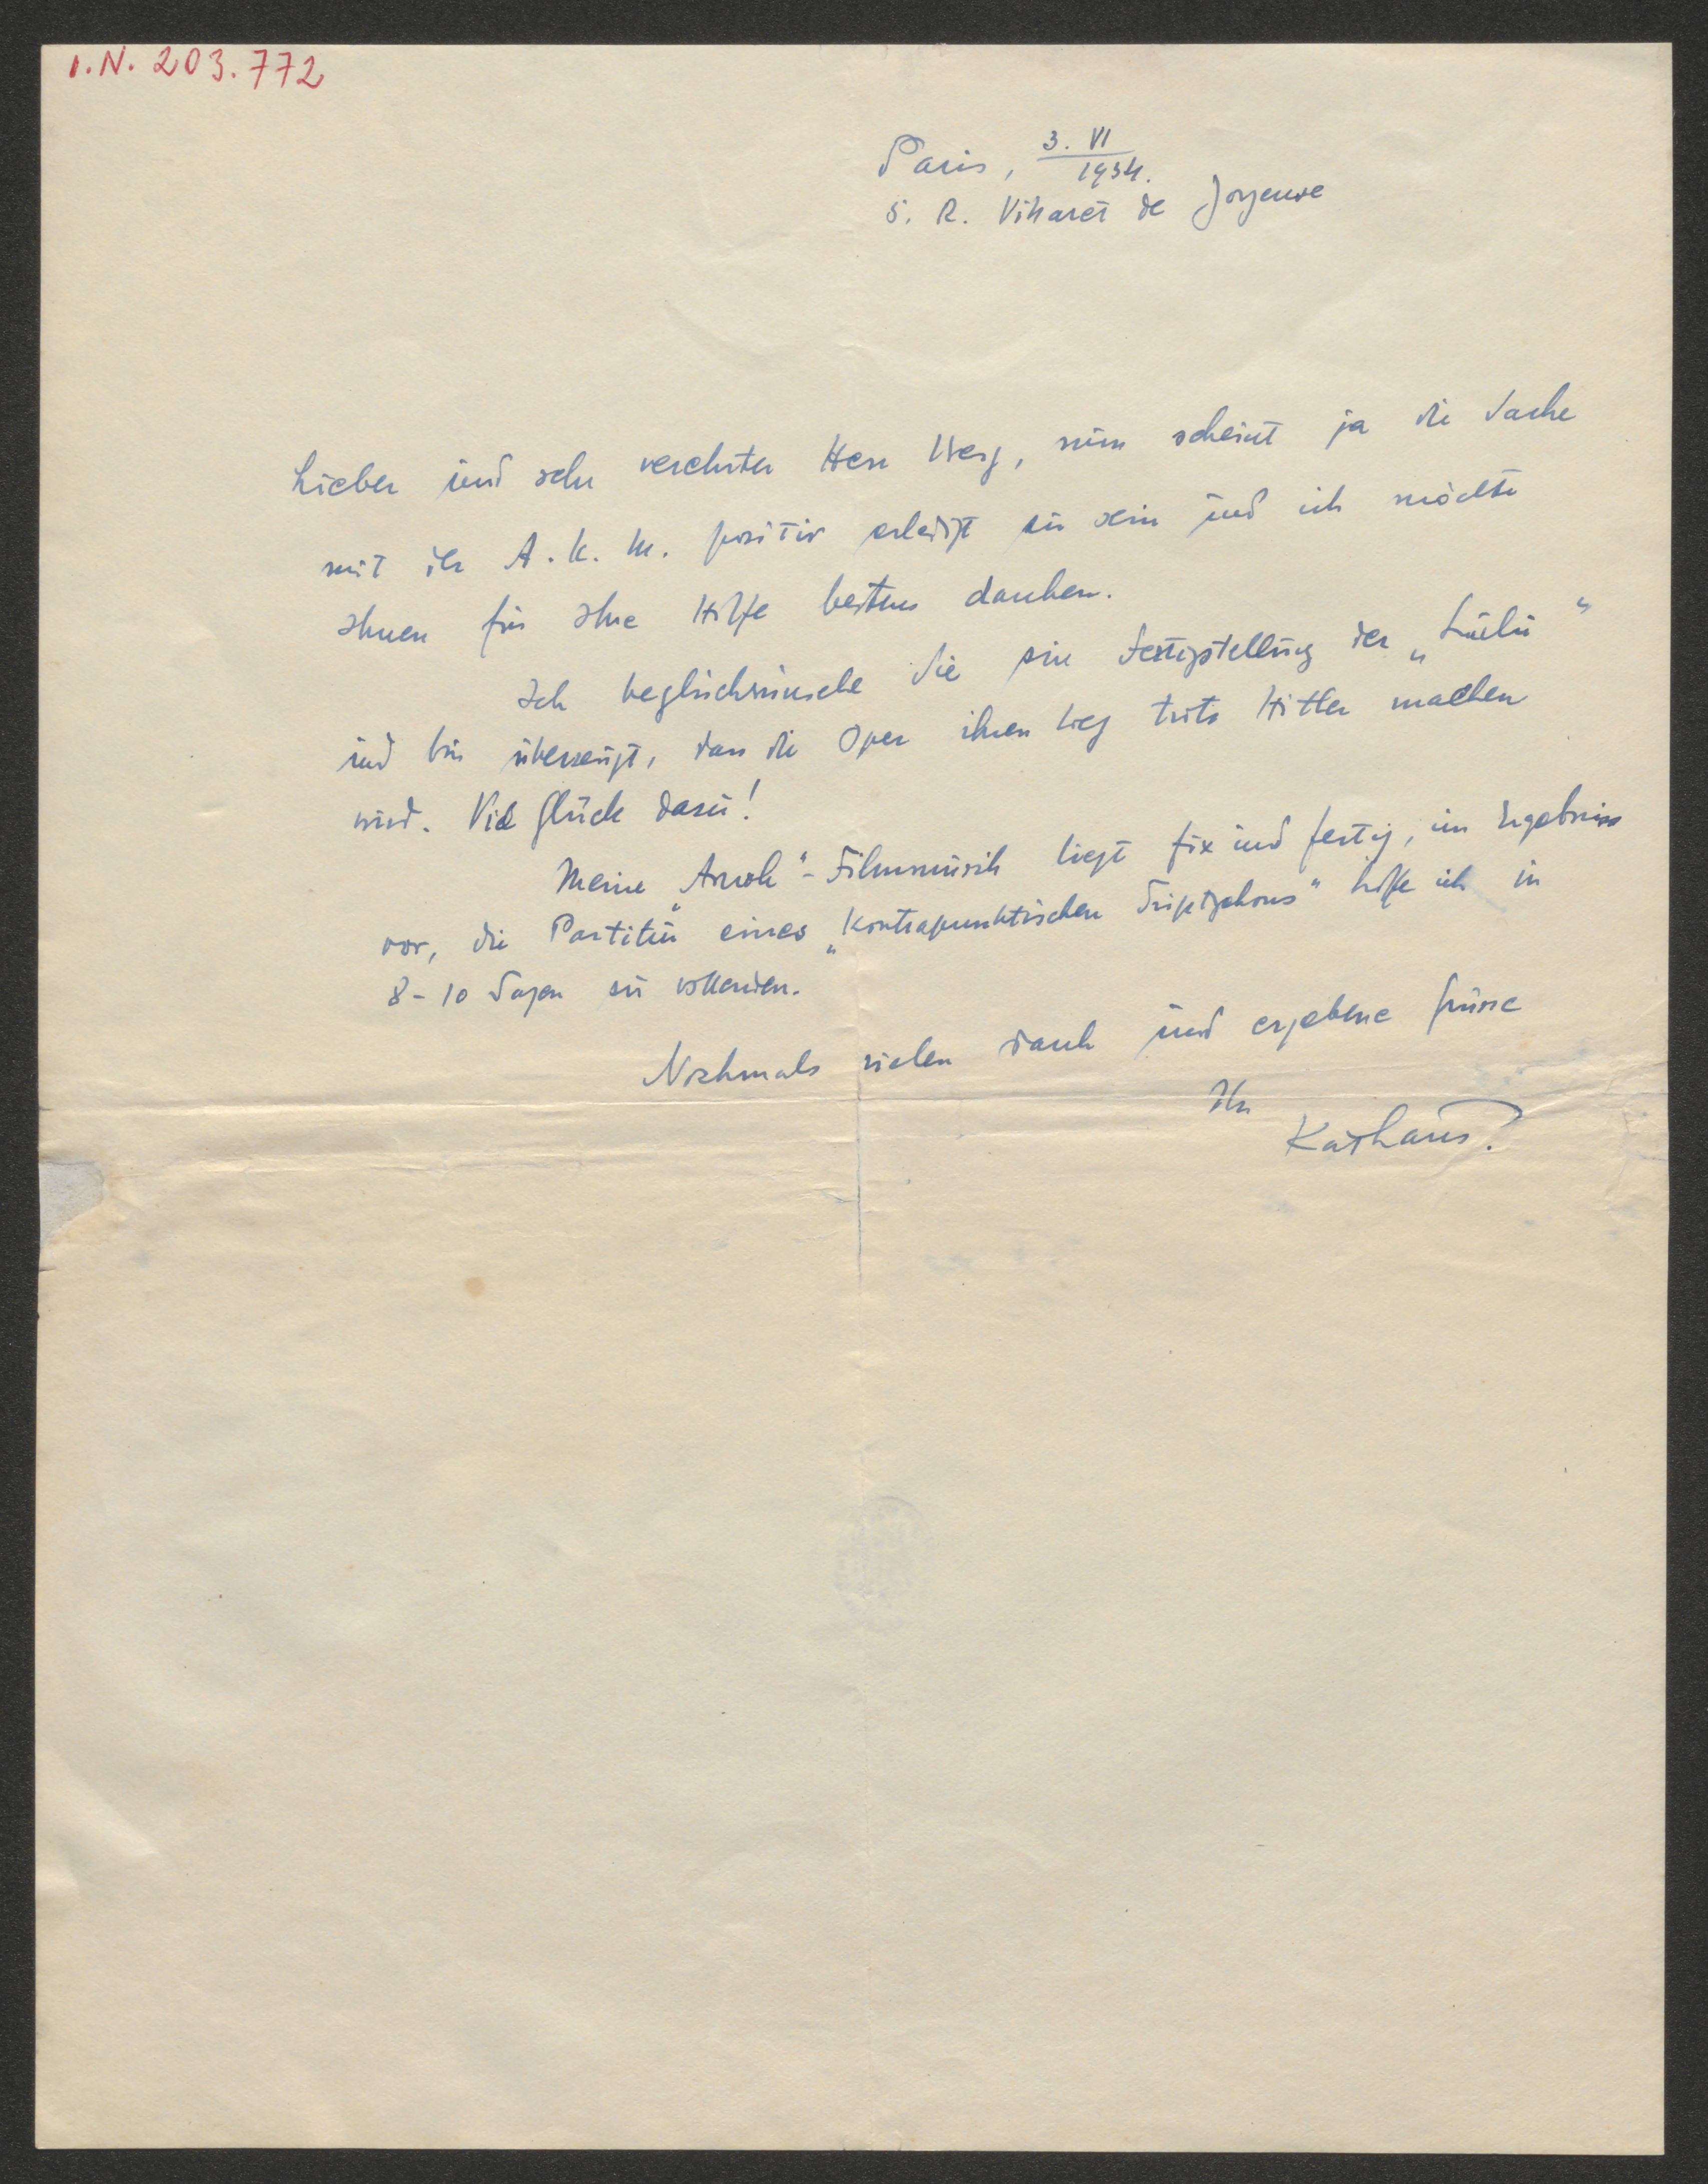 I.N. 203.772
Paris, 3. VI
1934.
5. R. Vitaret de Joyeuse
Lieber und sehr verehrter Herr Berg, nun scheint ja die Sache
mit der A.K.M. positiv erledigt zu sein und ich möchte
Ihnen für Ihre Hilfe bestens danken.
Ich beglückwünsche Sie zur Fertigstellung der „Lulu“
und bin überzeugt, dass die Oper ihren Weg trotz Hitler machen
wird. Viel Glück dazu!
Meine „Amok“-Filmmusik liegt fix und fertig, im Ergebniss
vor, die Partitur eines „Kontrapunktischen Triptychons“ hoffe ich in
8-10 Tagen zu vollenden.
Nochmals vielen Dank und ergebene Grüsse
Ihr
Rathaus.